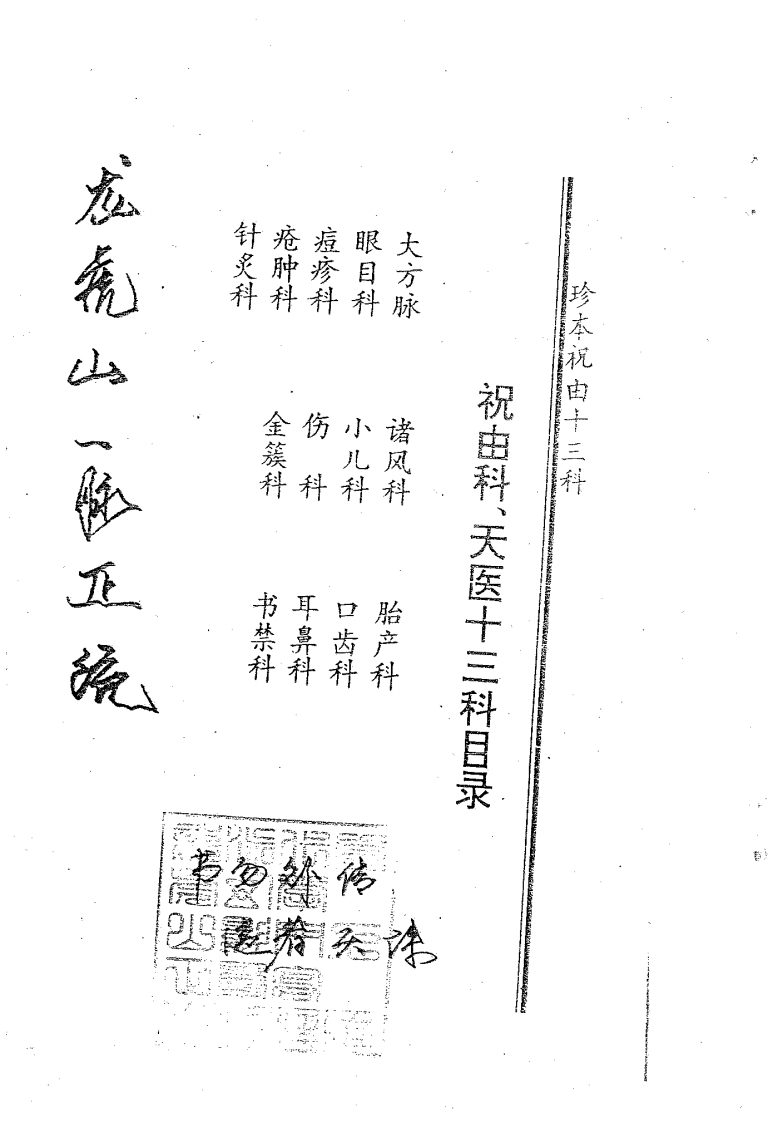 珍本祝由十三科
祝由科、天医十三科目录
大方脉 诸风科 胎产科
眼目科 小儿科 口齿科
痘疹科 伤科 耳鼻科
疮肿科 金簇科 书禁科
针炙科
龙虎山一脉正统
书勿外传
违者天诛